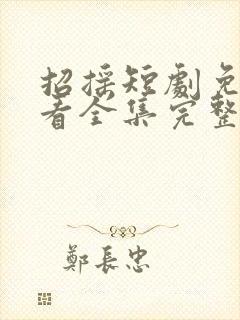 招摇短劇免
看全集完整
鄭長忠